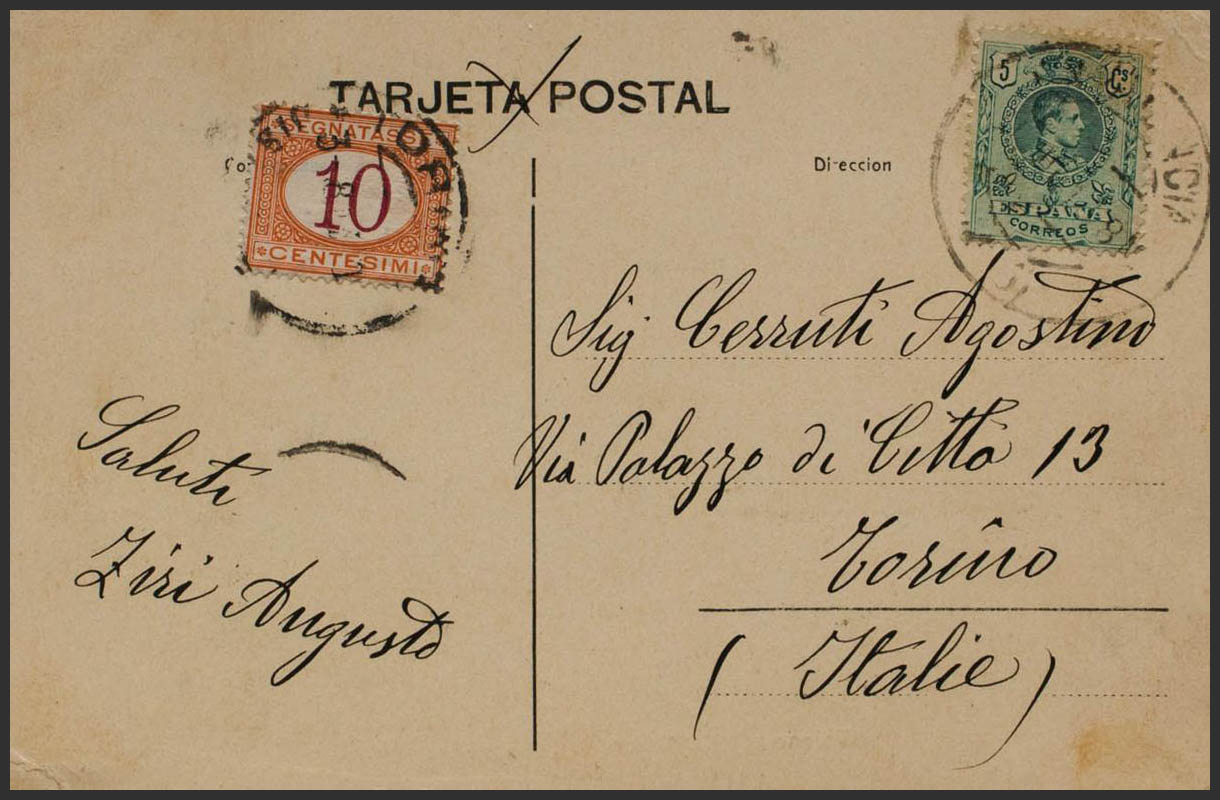 TARJETA POSTAL
SEGNATASSE
10
CENTESIMI
Direccion
5 Cs
ESPAÑA
CORREOS
Saluti
Ziri Augusto
Sig Cerruti Agostino
Via Palazzo di Citta 13
Torino
(Italie)